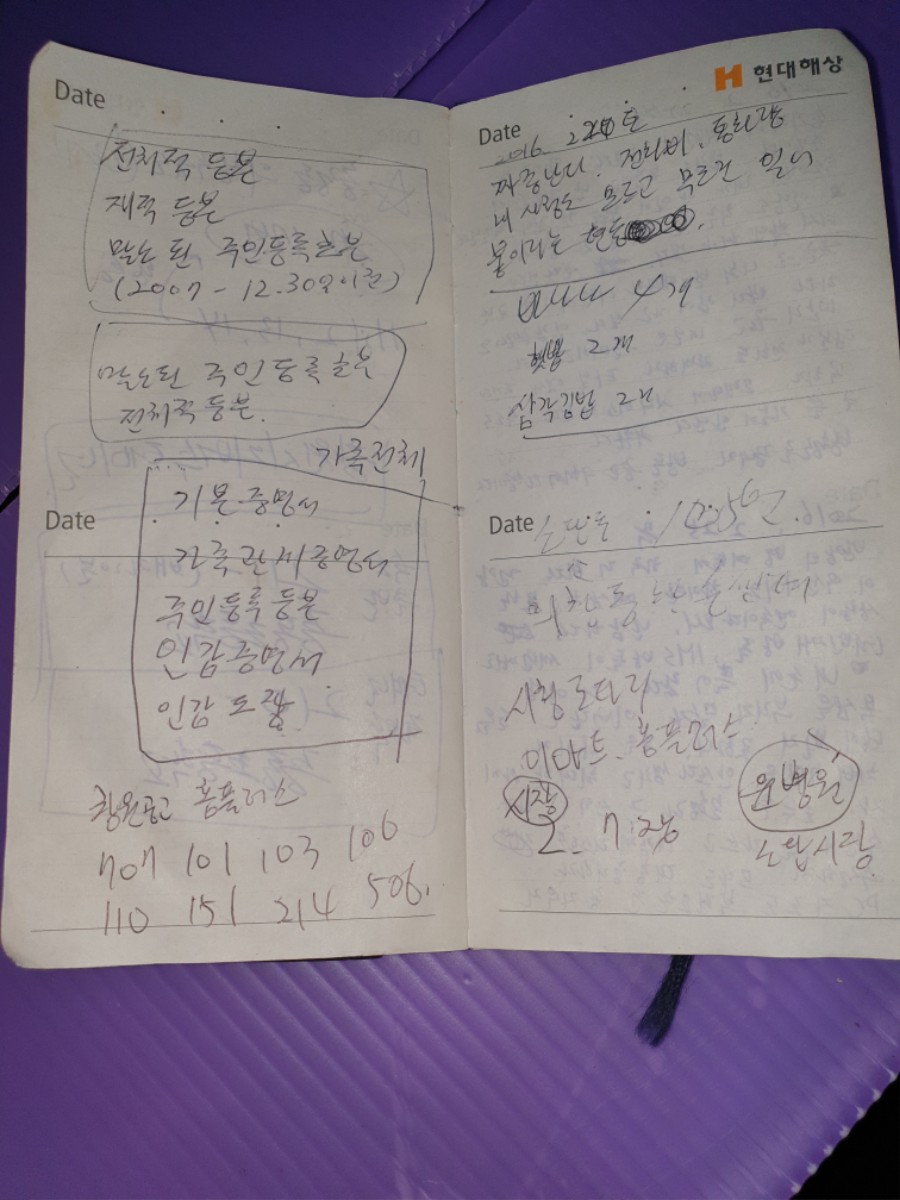 Date
전처적 등본
재적 등본
말소 된 주민등록초본
(2007 - 12.30일 이전)
말소된 주민등록초본
전처적등본.
가족전체
Date
기본증명서
가족관계증명서
주민등록등본
인감증명서
인감도장
창원공고 홈플러스
707 101 103 106
110 151 214 506.
현대해상
Date
2016. 토
짜증난다. 전화비, 통화량
내 사정도 모르고 무조건
바나나 4개
햇밥 2개
삼각김밥 2개
Date
시청로타리
이마트. 홈플러스
시장
윤병원
2.